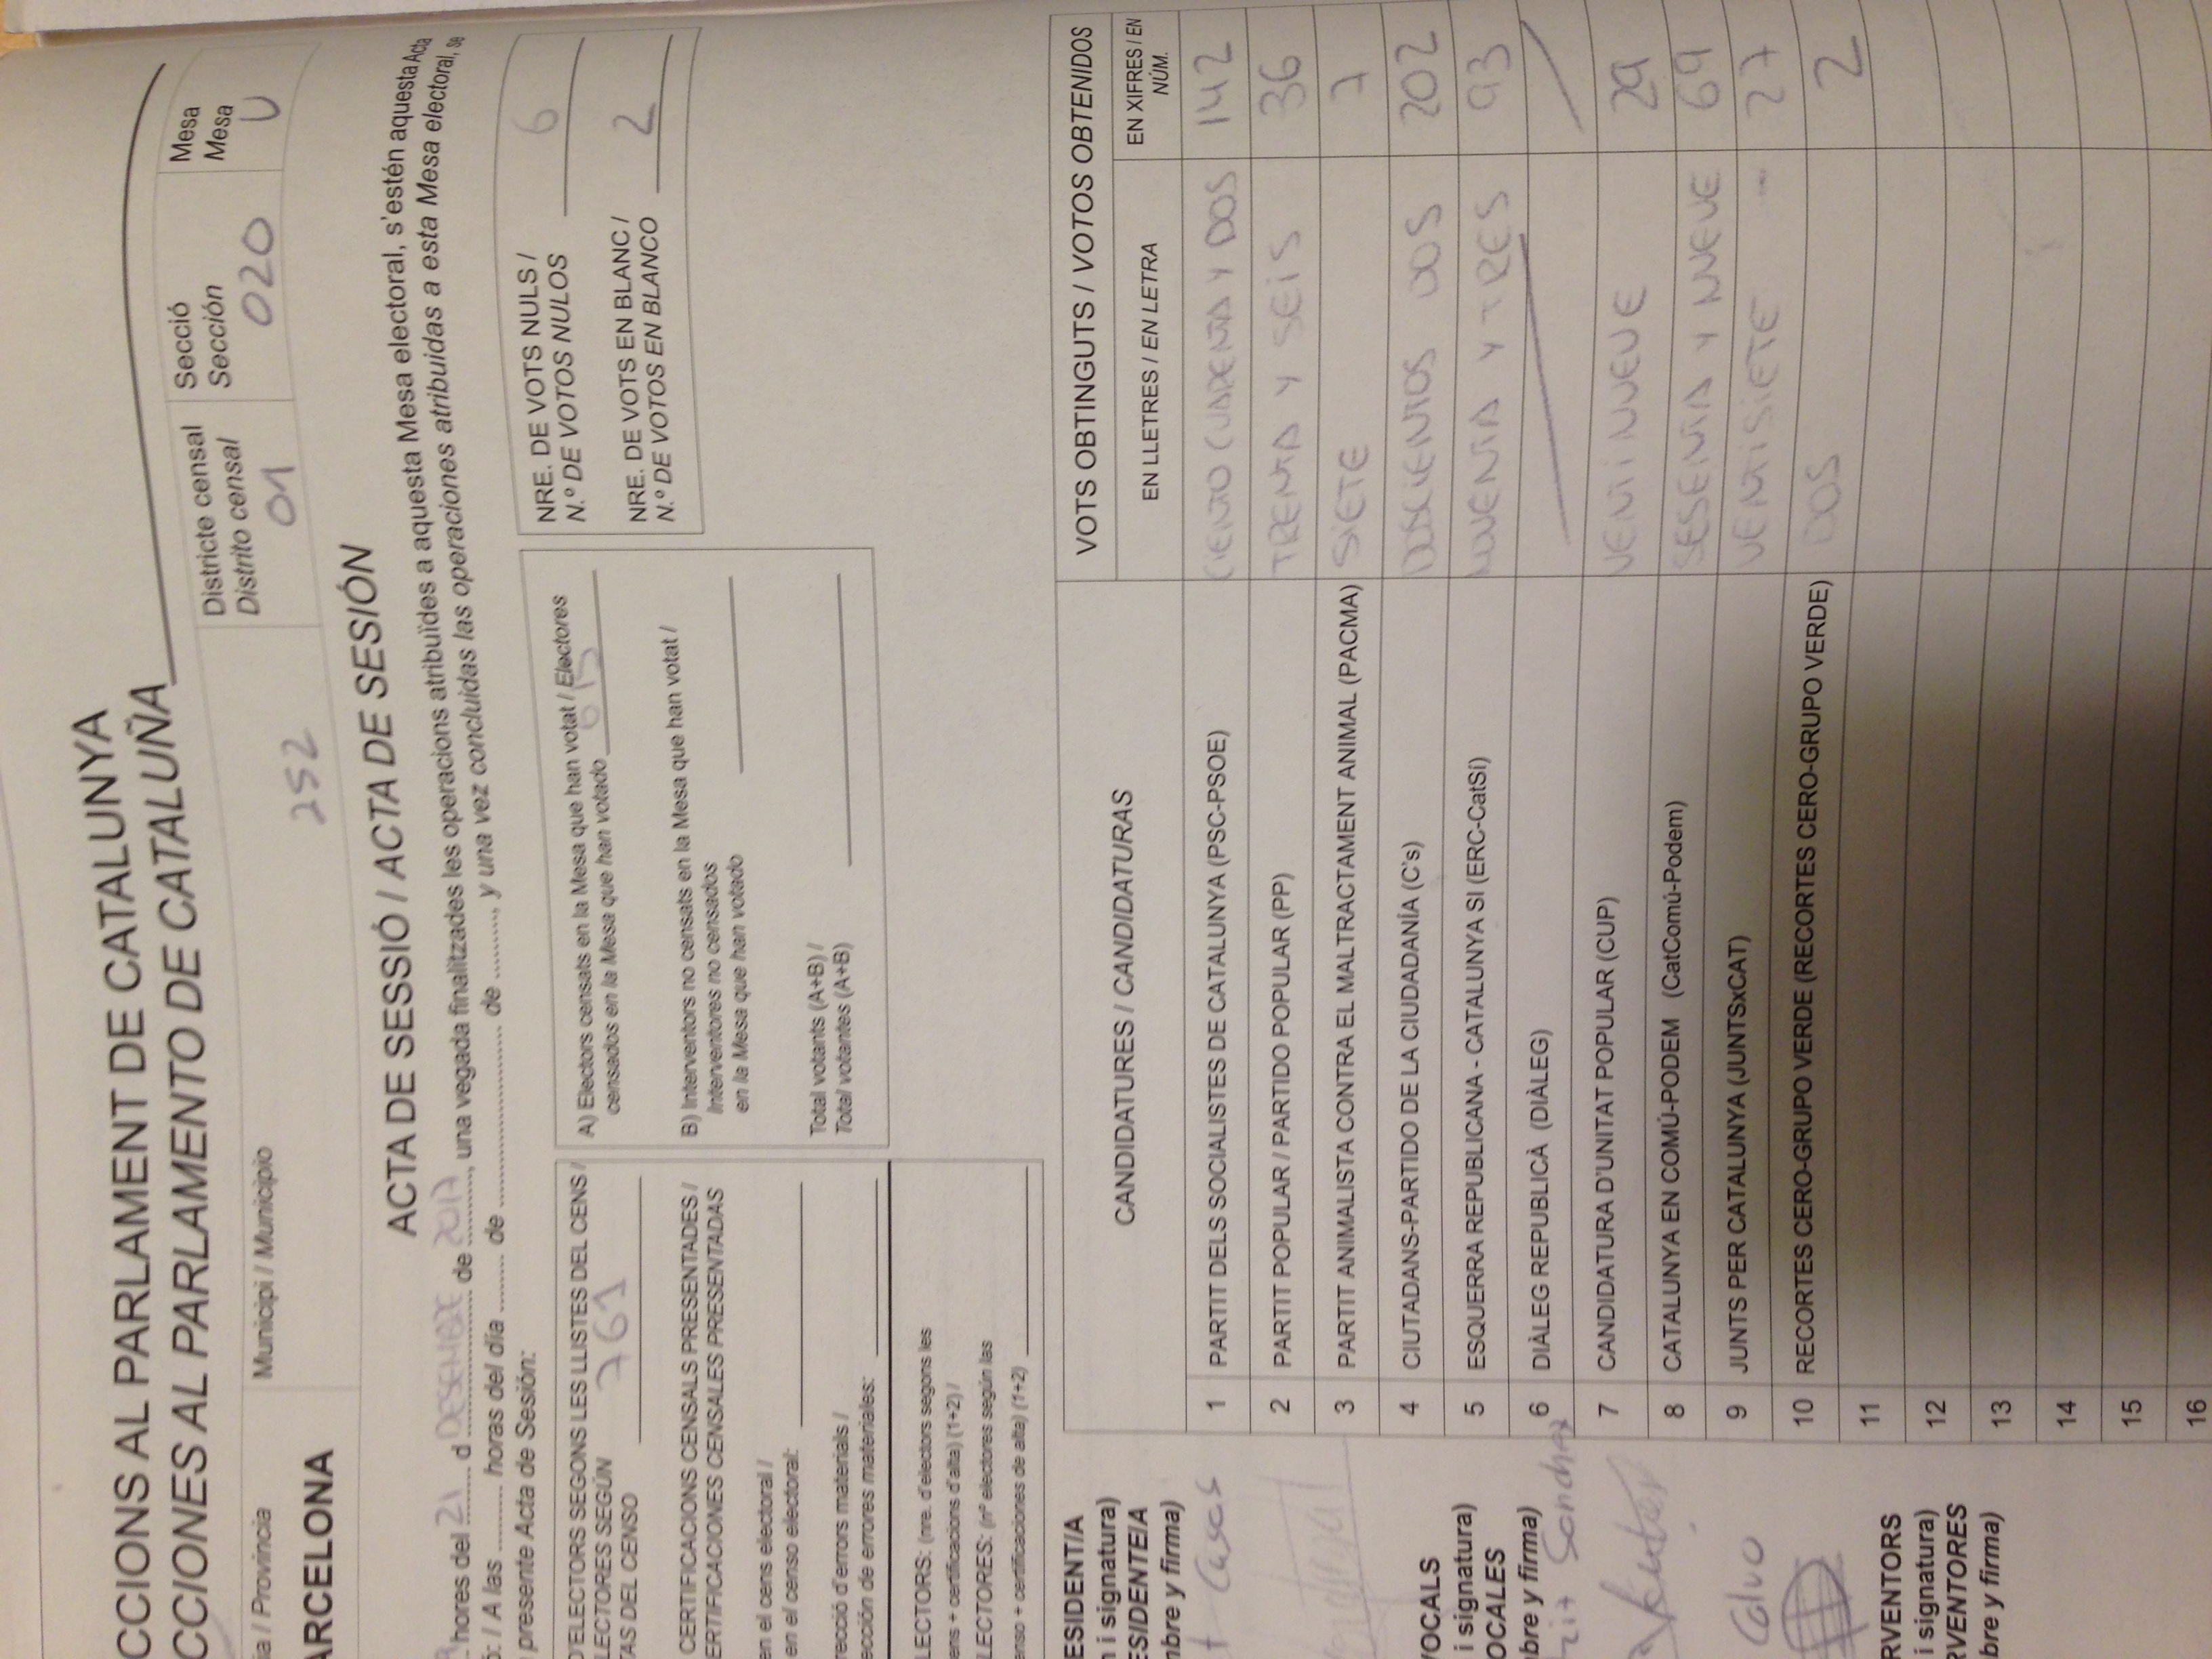 CCIONS AL PARLAMENT DE CATALUNYA
CCIONES AL PARLAMENTO DE CATALUÑA
ia / Provincia
ARCELONA
Municipi / Municipio
252
Districte censal
Distrito censal
01
Secció
Sección
020
Mesa
Mesa
U
ACTA DE SESSIÓ / ACTA DE SESIÓN
hores del 21 d DESEMBRE de 2017, una vegada finalitzades les operacions atribuïdes a aquesta Mesa electoral, s'estén aquesta Acta
ó: / A las ......... horas del día ........ de ......................... de ........., y una vez concluidas las operaciones atribuidas a esta Mesa electoral, se
presente Acta de Sesión:
D'ELECTORS SEGONS LES LLISTES DEL CENS /
LECTORES SEGÚN
TAS DEL CENSO
761
CERTIFICACIONS CENSALS PRESENTADES /
ERTIFICACIONES CENSALES PRESENTADAS
en el cens electoral /
en el censo electoral:
recció d'errors materials /
ección de errores materiales:
LECTORS: (nre. d'electors segons les
ens + certificacions d'alta) (1+2) /
LECTORES: (nº electores según las
enso + certificaciones de alta) (1+2)
A) Electors censats en la Mesa que han votat / Electores
censados en la Mesa que han votado 615
B) Interventors no censats en la Mesa que han votat /
Interventores no censados
en la Mesa que han votado
Total votants (A+B) /
Total votantes (A+B)
NRE. DE VOTS NULS /
N.º DE VOTOS NULOS 6
NRE. DE VOTS EN BLANC /
N.º DE VOTOS EN BLANCO 2
ESIDENT/A
n i signatura)
ESIDENTE/A
mbre y firma)
t Casas
VOCALS
i signatura)
OCALES
bre y firma)
Sanchez
Calvo
RVENTORS
i signatura)
RVENTORES
bre y firma)
CANDIDATURES / CANDIDATURAS
VOTS OBTINGUTS / VOTOS OBTENIDOS
EN LLETRES / EN LETRA
EN XIFRES / EN
NÚM.
1 PARTIT DELS SOCIALISTES DE CATALUNYA (PSC-PSOE) CIENTO CUARENTA Y DOS 142
2 PARTIT POPULAR / PARTIDO POPULAR (PP) TRENTA Y SEIS 36
3 PARTIT ANIMALISTA CONTRA EL MALTRACTAMENT ANIMAL (PACMA) SIETE 7
4 CIUTADANS-PARTIDO DE LA CIUDADANÍA (C's) DOSCIENTOS DOS 202
5 ESQUERRA REPUBLICANA - CATALUNYA SI (ERC-CatSí) NOVENTA Y TRES 93
6 DIÀLEG REPUBLICÀ (DIÀLEG)
7 CANDIDATURA D'UNITAT POPULAR (CUP) VENTINUEVE 29
8 CATALUNYA EN COMÚ-PODEM (CatComú-Podem) SESENTA Y NUEVE 69
9 JUNTS PER CATALUNYA (JUNTSxCAT) VENTISIETE - 27
10 RECORTES CERO-GRUPO VERDE (RECORTES CERO-GRUPO VERDE) DOS 2
11
12
13
14
15
16